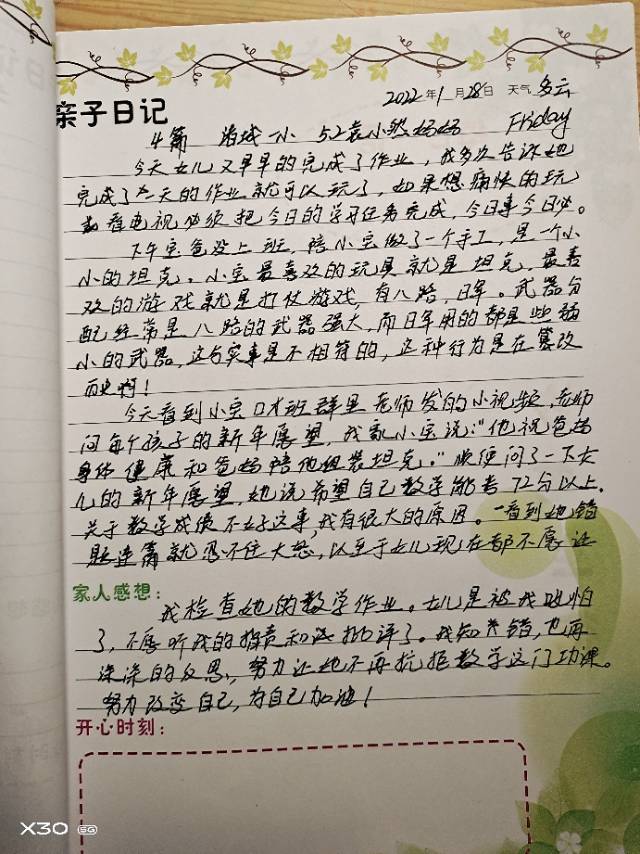 亲子日记
2022年1月28日 天气 多云
4篇 洛城一小 52袁小然妈妈 Friday
今天女儿又早早的完成了作业，我多次告诉她
完成了一天的作业就可以玩了，如果想痛快的玩
看电视必须把今日的学习任务完成，今日事今日毕。
下午宝爸没上班，陪小宝做了一个手工，是一个小
小的坦克。小宝最喜欢的玩具就是坦克，最喜
欢的游戏就是打仗游戏，有八路，日军。武器分
配经常是八路的武器强大，而日军用的都是些弱
小的武器，这与实事是不相符的，这种行为是在篡改
历史啊！
今天看到小宝口才班群里老师发的小视频，老师
问每个孩子的新年愿望，我家小宝说："他祝爸妈
身体健康和爸妈陪他组装坦克。"顺便问了一下大
儿的新年愿望，她说希望自己数学能考72分以上。
关于数学成绩不好这事，我有很大的原因。一看到她错
题连篇就忍不住大怒，以至于女儿现在都不愿让
家人感想：
我检查她的数学作业。女儿是被我吼怕
了，不愿听我的指责和批评了。我知错，也再
深深的反思，努力让她不再抗拒数学这门功课。
努力改变自己，为自己加油！
开心时刻：
X30 5G